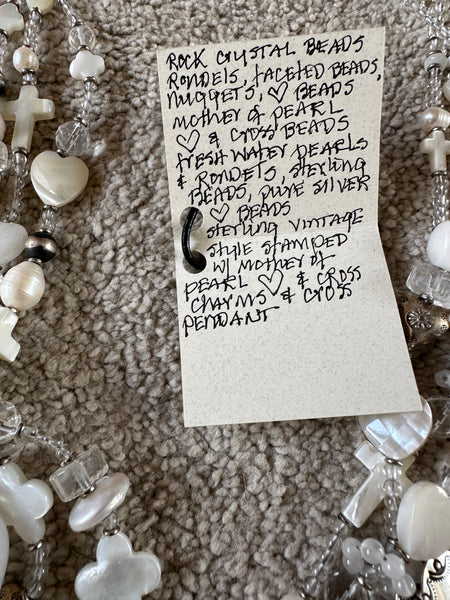 ROCK CRYSTAL BEADS
RONDELS, FACETED BEADS,
NUGGETS, ♡ BEADS
MOTHER OF PEARL
♡ & CROSS BEADS
FRESH WATER PEARLS
& RONDELS, STERLING
BEADS, PURE SILVER
♡ BEADS
STERLING VINTAGE
STYLE STAMPED
W/ MOTHER OF
PEARL ♡ & CROSS
CHARMS & CROSS
PENDANT